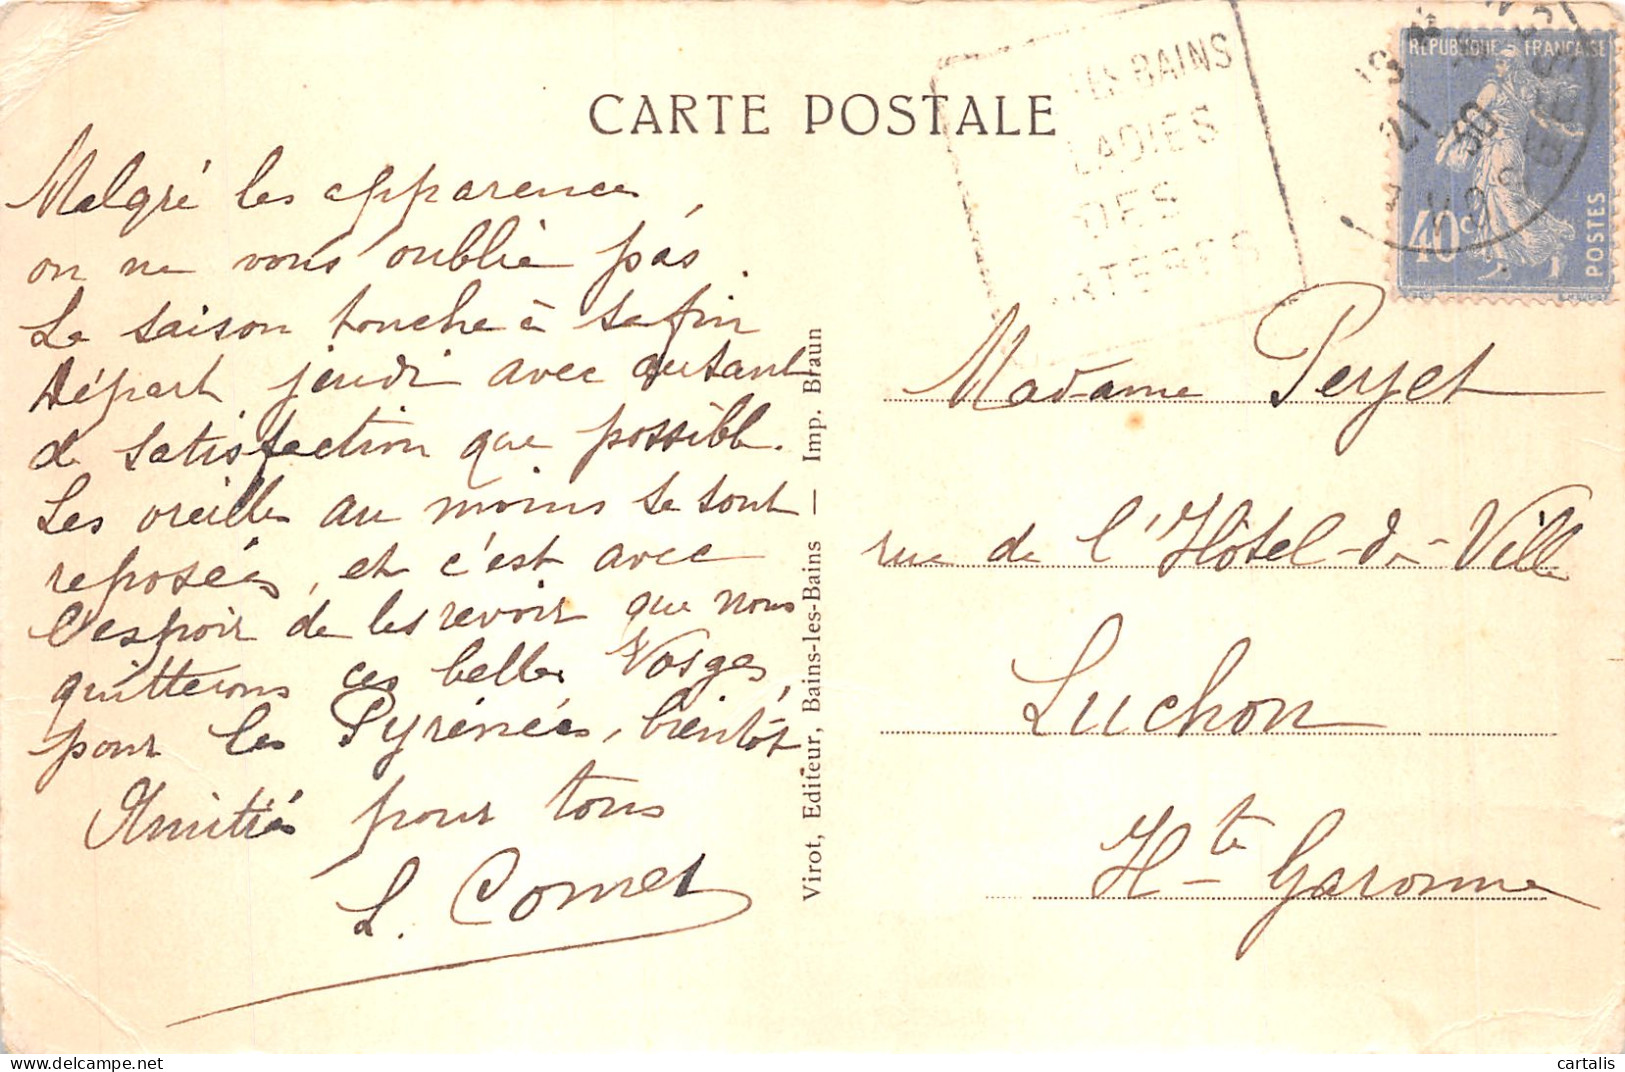 CARTE POSTALE
Malgré les apparences,
on ne vous oublie pas.
La saison touche à sa fin
Départ jeudi avec autant
de satisfaction que possible.
Les oreilles au moins se sont
reposées, et c'est avec
l'espoir de les revoir que nous
quitterons ces belles Vosges,
pour les Pyrénées, bientôt
Amitiés pour tous
L. Comet
Virot, Editeur, Bains-les-Bains — Imp. Braun
LES BAINS
LADIES
DES
RTÈRES
RÉPUBLIQUE FRANÇAISE
40c
POSTES
21
30
VOSGES
Madame Peyet
rue de l'Hôtel-de-Ville
Luchon
Hte Garonne
cartalis